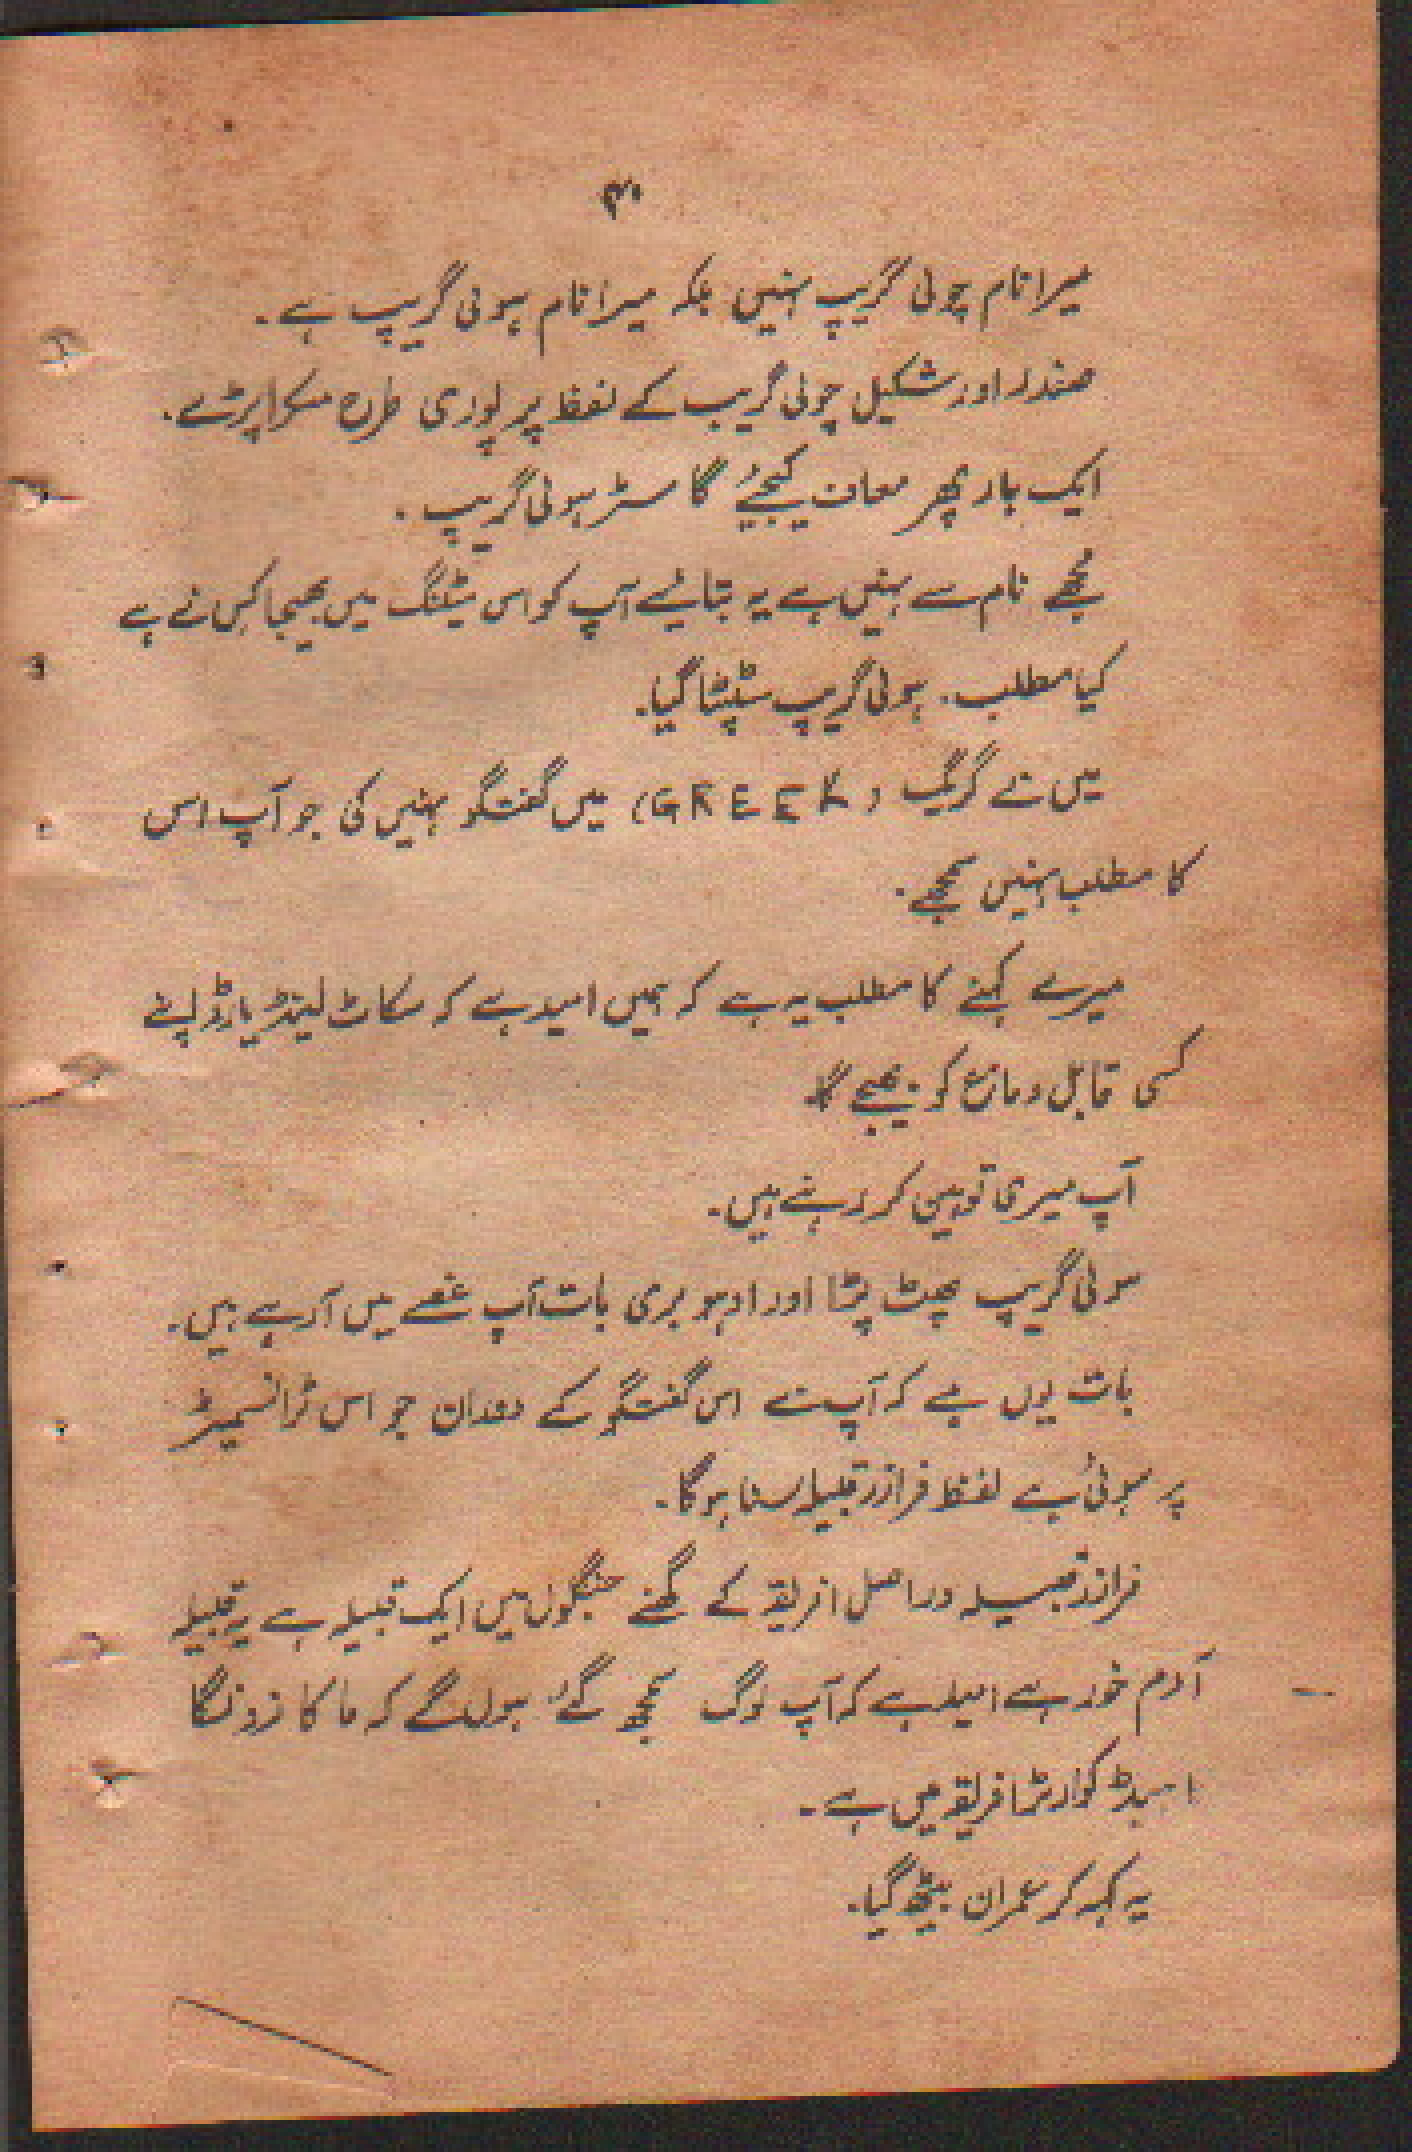 ۳۰
میرا نام چوئی گریپ نہیں بلکہ میرا نام ہوئی گریپ ہے۔
صفدر اور شکیل چوئی گریپ کے لفظ پر پوری طرح مسکرا پڑے۔
ایک بار پھر معاف کیجئے گا مسٹر ہوئی گریپ۔
مجھے نام سے نہیں ہے یہ بتائیے آپ کو اس میٹنگ میں بھیجا کس نے ہے
کیا مطلب۔ ہوئی گریپ سٹپٹا گیا۔
میں نے گریک (GREEK) میں گفتگو نہیں کی جو آپ اس
کا مطلب نہیں سمجھے۔
میرے کہنے کا مطلب یہ ہے کہ ہمیں امید ہے کہ سکاٹ لینڈ یارڈ اپنے
کسی قابل دماغ کو بھیجے گا
آپ میری توہین کر رہے ہیں۔
ہوئی گریپ پھٹ پڑا اور اوہو بری بات آپ غصے میں آ رہے ہیں۔
بات یوں ہے کہ آپ نے اس گفتگو کے دوران جو اس ٹرانسمیٹر
پر ہوئی ہے لفظ فرازر قبیلہ سنا ہوگا۔
فرازر قبیلہ دراصل افریقہ کے گھنے جنگلوں میں ایک قبیلہ ہے یہ قبیلہ
آدم خور ہے امید ہے کہ آپ لوگ سمجھ گئے ہوں گے کہ ماکا زونگا
ا ہیڈ کوارٹر افریقہ میں ہے۔
یہ کہہ کر عمران بیٹھ گیا۔